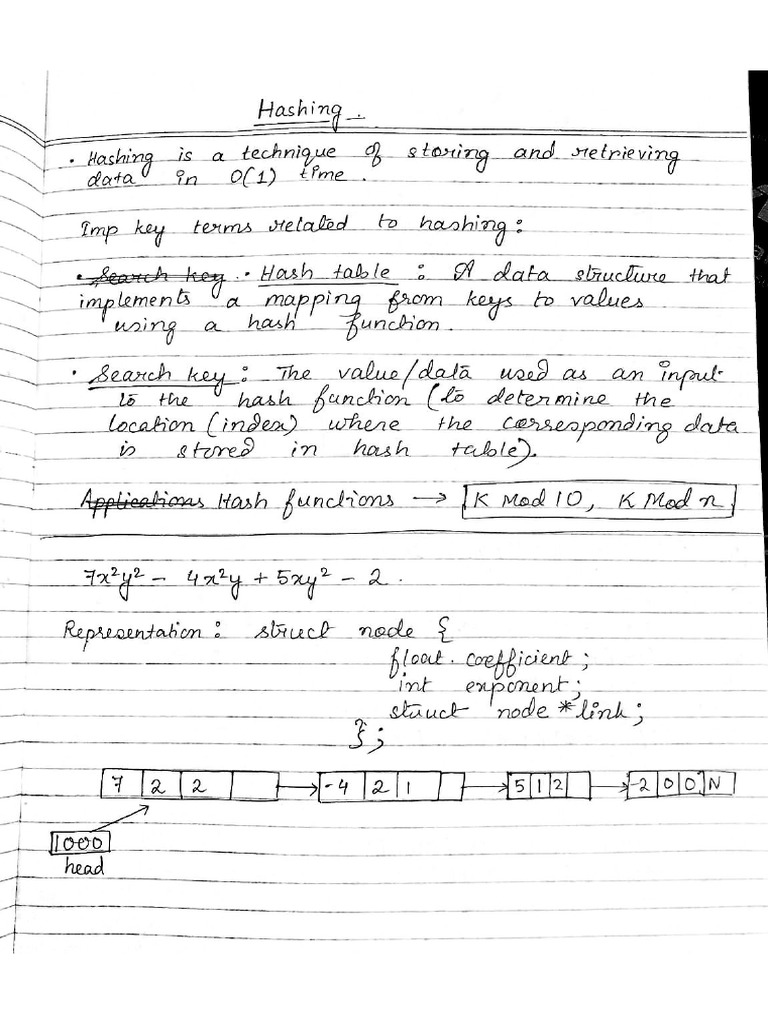 Hashing
• Hashing is a technique of storing and retrieving
data in O(1) time.
Imp key terms related to hashing:
• Search key • Hash table : A data structure that
implements a mapping from keys to values
using a hash function.
• Search key : The value/data used as an input
to the hash function (to determine the
location (index) where the corresponding data
is stored in hash table).
Applications Hash functions → K Mod 10, K Mod n
7x²y² - 4x²y + 5xy² - 2.
Representation : struct node {
float coefficient;
int exponent;
struct node *link;
};
7 2 2 → -4 2 1 → 5 1 2 → -2 0 0 N
1000
head